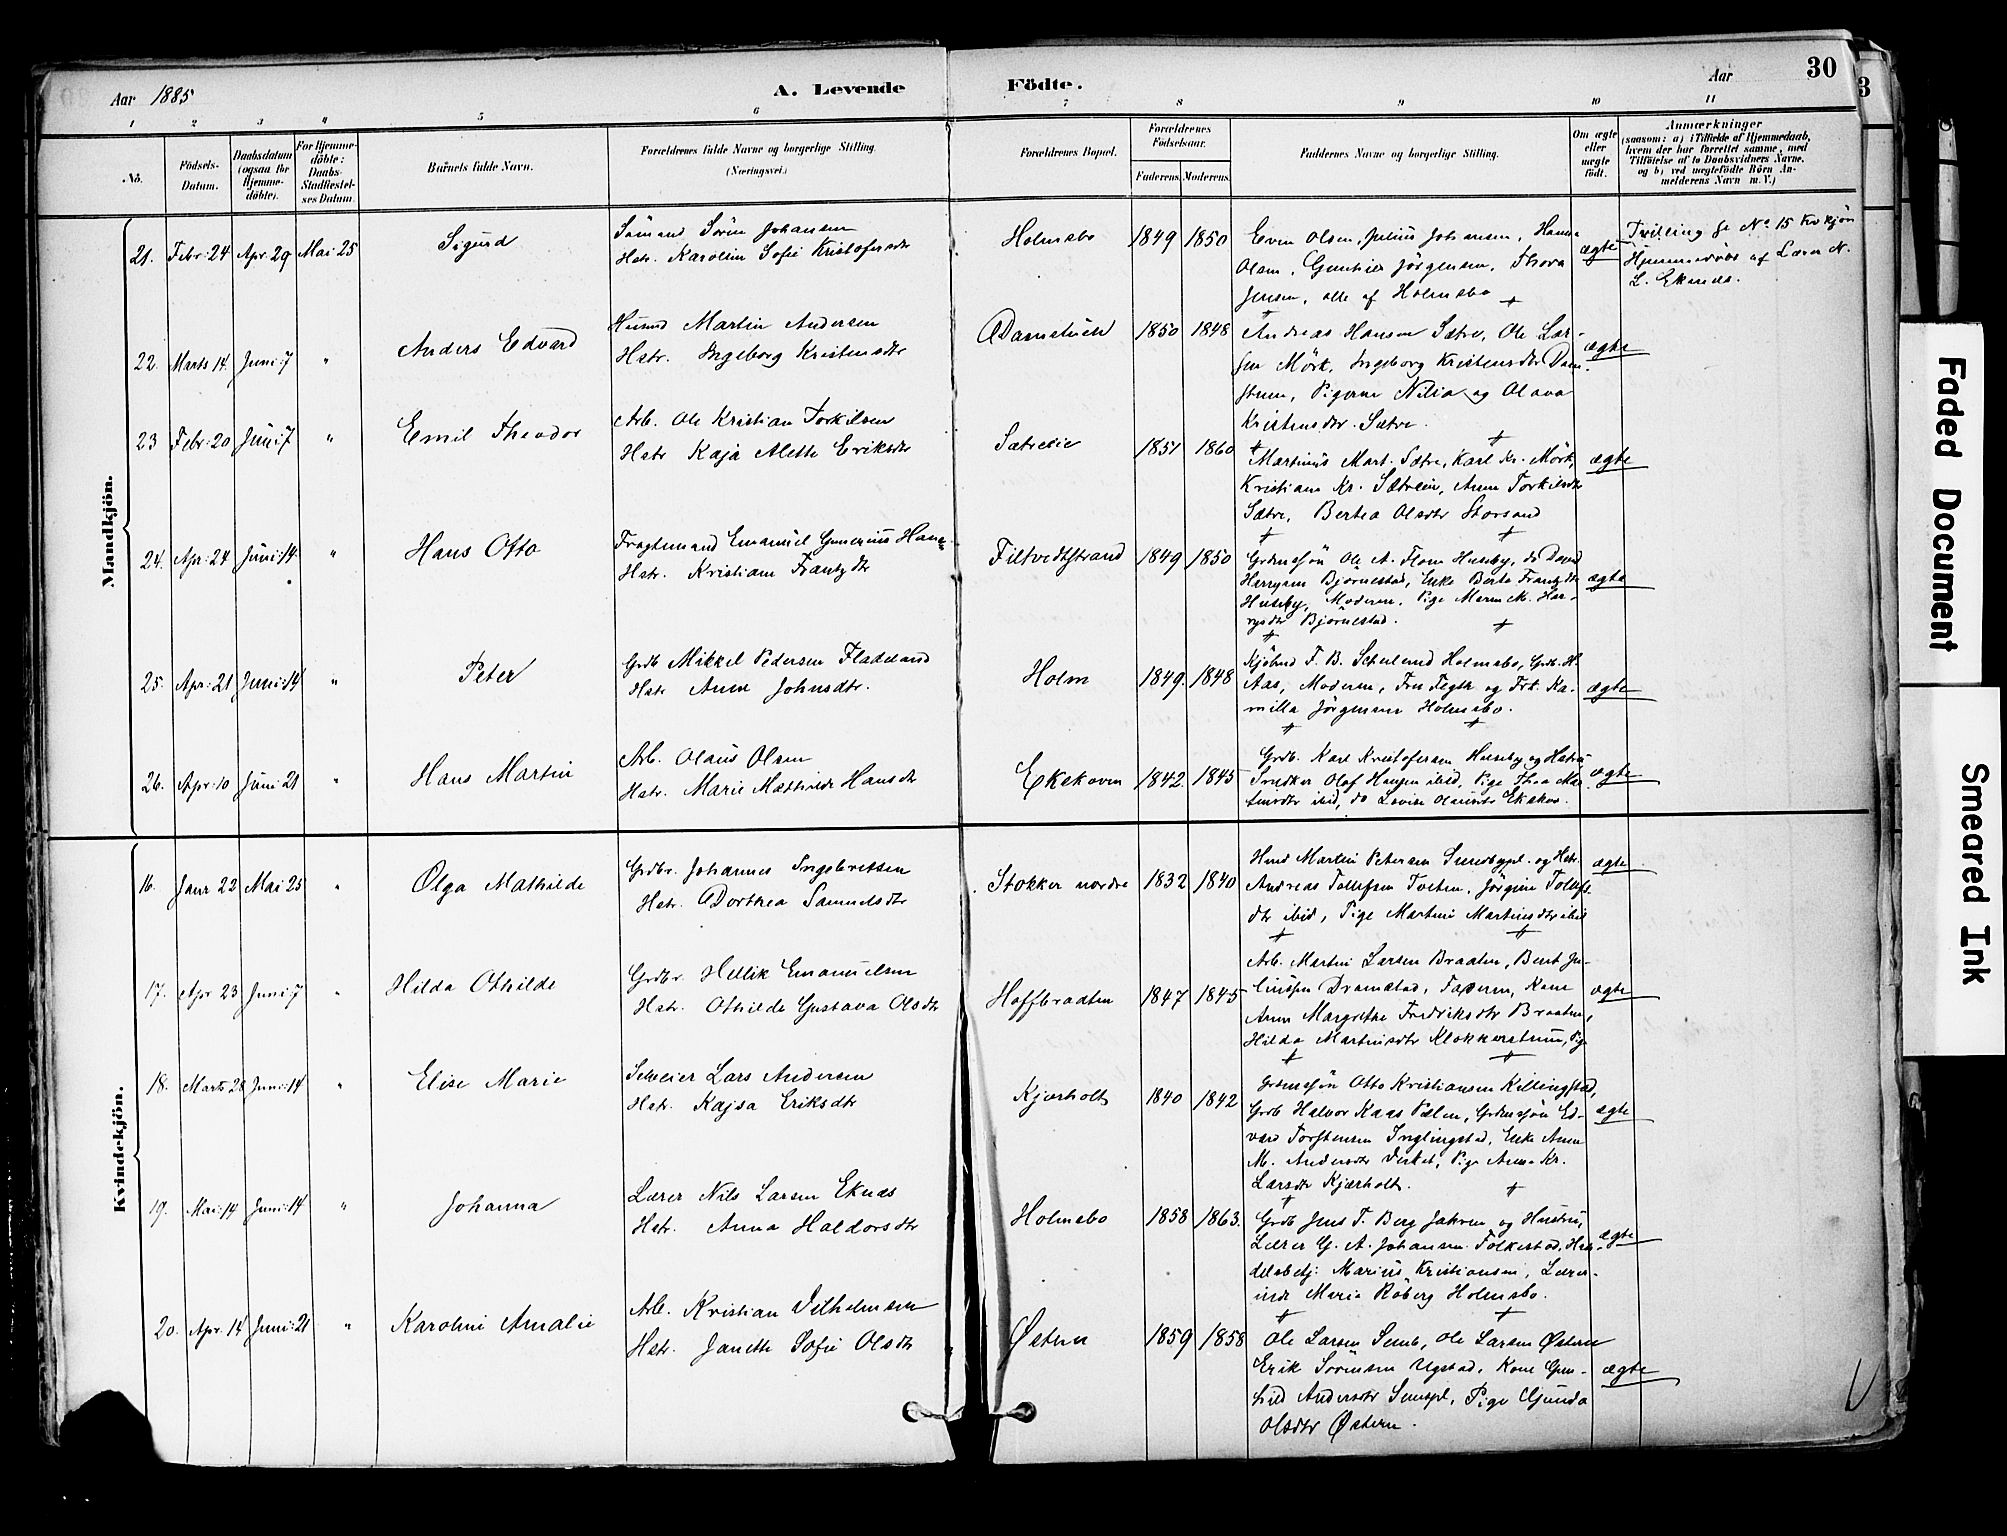 Aar 1885
A. Levende Födte.
Aar 30
1 2 3 4 5 6 7 8 9 10 11
No.
Födsels-Datum.
Daabsdatum (ogsaa for Hjemme-döbte).
For Hjemme-döbte: Daabs-Stadfæstel-ses Datum.
Barnets fulde Navn.
Forældrenes fulde Navne og borgerlige Stilling. (Næringsvei.)
Forældrenes Bopæl.
Forældrenes Födselsaar.
Faderens. Moderens.
Faddernes Navne og borgerlige Stilling.
Om ægte eller uægte födt.
Anmærkninger
(saasom: a) i Tilfælde af Hjemmedaab,
hvem der har forrettet samme, med
Tilföielse af to Daabsvidners Navne,
og b) ved uægtefödte Börn An-
melderens Navn m. V.)
Mandkjön.
21. Febr: 24 Apr. 29 Mai 25 Sigurd
Sömand Sörin Johansen
Hstr. Karolin Sofie Kristofersdtr
Holmsbo 1849 1850
Even Olsen, Julius Johansen, Hans
Olsen, Gunhier Jörgensen, Thora
Jensen, alle af Holmsbo
ægte
Tvilling se No 15 Kvkjön
Hjemmedöbt af Lærer N.
L. Eknes.
22. Marts 14. Juni 7 " Anders Edvard
Husmd Martin Andersen
Hstr. Ingeborg Kristensdtr
Damstuen 1850 1848
Andreas Hansen Sætre, Ole Lar-
sen Mörk, Ingeborg Kristensdtr Dam-
stuen, Pigerne Nilia og Olava
Kristensdtr. Sætre.
ægte
23 Febr: 20 Juni 7 " Emil Theodor
Arb. Ole Kristian Torkilsen
Hstr Kaja Mette Eriksdtr
Sætreeie 1851 1860
Martinus Mart. Sætre, Karl Kr. Mörk,
Kristian Kr. Sætreeie, Anne Torkilsdtr
Sætre, Bertea Olsdtr Storsand
ægte
24. Apr: 24 Juni 14. " Hans Otto
Fragtemand Emanuel Gunerius Hans.
Hstr. Kristiane Frantzdtr
Filtvedtstrand 1849 1850
Grdmssön Ole A. Flom Huseby, do David
Herrgsen Björnestad, Enke Berte Frantzdtr
Huseby, Moderen, Pige Maren M. Har-
rysdtr Björnestad.
ægte
25. Apr: 21 Juni 14 " Peter
Grdb Mikkel Pedersen Fladeland
Hstr Anne Johnsdtr.
Holm 1849. 1848
Kjöbmd F. B. Schulrud Holmsbo, Grdb. H.
Aas, Moderen, Fru Fegth og Frk. Ka-
milla Jörgensen Holmsbo.
ægte
26. Apr: 10 Juni 21 " Hans Martin
Arb. Olaus Olsen
Hstr. Marie Mathilde Hansdtr
Ekekoven 1842. 1845
Grdb. Karl Kristofersen Huseby og Hstru
Snedker Olof Haugen ibid, Pige Thea Mar-
tinsdtr ibid, do Lovise Olausdtr Ekekov.
ægte
Kvindekjön.
16. Janr 22 Mai 25 " Olga Mathilde
Grdbr. Johannes Ingebretsen
Hstr. Dorthea Samuelsdtr
Stokker nordre 1832 1840
Husmd Martin Petersen Sundbypl. og Hstr.
Andreas Tollefsen Tveten, Jörgine Tollefs
dtr ibid, Pige Martine Martinsdtr ibid
ægte
17. Apr 23 Juni 7 " Hilda Othilde
Grdbr. Hellik Emanuelsen
Hstr. Othilde Gustava Olsdtr
Hoffbraaten 1847 1845
Arb. Martin Larsen Braaten, Bernt Ju-
liussen Dramstad, Faderen, Kone
Anne Margrethe Fredriksdtr Braaten,
Hilda Martinsdtr Klokkerstuen, Pig
ægte
18. Marts 28 Juni 14 " Elise Marie
Selveier Lars Andersen
Hstr. Kajsa Eriksdtr
Kjærholt 1840 1842
Grdmssön Otto Kristiansen Killingstad,
Grdb Halvor Kaas Pælen, Grdmssön Ed-
vard Torstensen Inglingstad, Enke Anne
M. Andersdtr Virket, Pige Anne Kr.
Larsdtr Kjærholt.
ægte
19. Mai 14 Juni 14 " Johanna
Lærer Nils Larsen Eknæs
Hstr. Anna Haldorsdtr
Holmsbo 1858 1863.
Grdb Jens T. Berg Jahren og Hustru,
Lærer G. A. Johansen Folkestad, Han-
delsbetj. Marius Kristiansen, Lærer-
inde Maria Röberg Holmsbo.
ægte
20. Apr. 14 Juni 21 " Karoline Amalie
Arb. Kristian Vilhelmsen
Hstr. Janette Sofie Olsdtr
Østern 1859 1858
Ole Larsen Semb, Ole Larsen Østern
Erik Sörensen Ugstad, Kone Gun-
hild Andersdtr Semspl, Pige Gjunda
Olsdtr Østern.
ægte
3
Faded Document
Smeared Ink